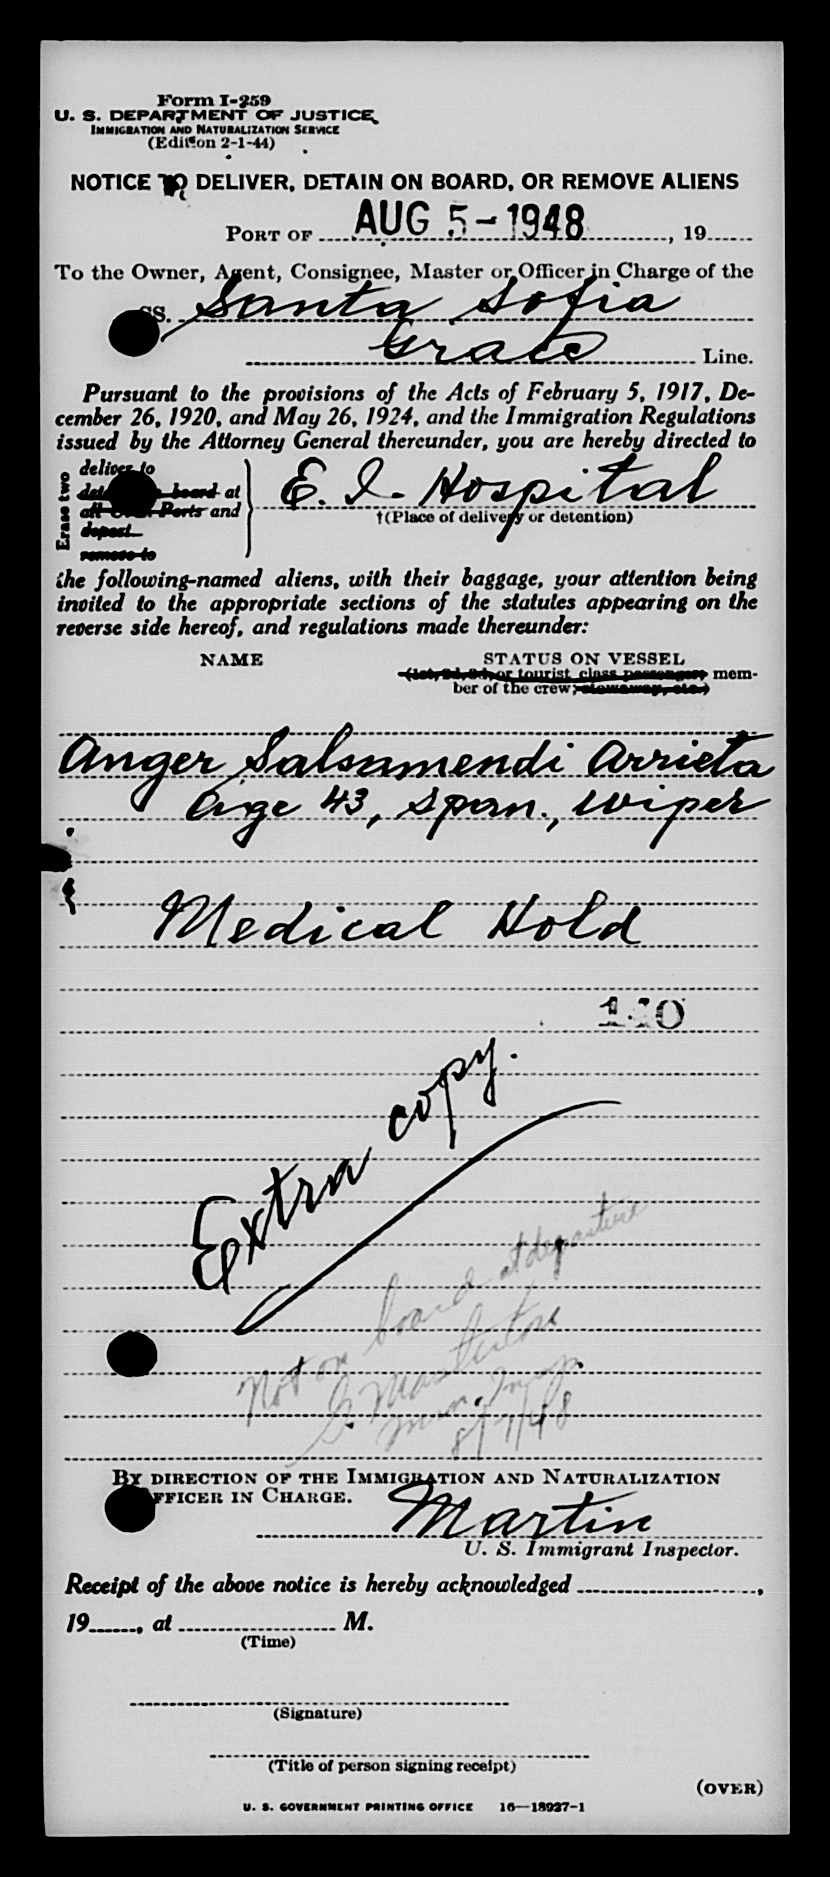 Form I-259
U. S. DEPARTMENT OF JUSTICE
IMMIGRATION AND NATURALIZATION SERVICE
(Edition 2-1-44)
NOTICE TO DELIVER, DETAIN ON BOARD, OR REMOVE ALIENS
PORT OF AUG 5-1948, 19
To the Owner, Agent, Consignee, Master or Officer in Charge of the
SS. Santa Sofia
Grace Line.
Pursuant to the provisions of the Acts of February 5, 1917, De-
cember 26, 1920, and May 26, 1924, and the Immigration Regulations
issued by the Attorney General thereunder, you are hereby directed to
Erase two
deliver to
board at
all Ports and
deport
remove to
E. I. Hospital
†(Place of delivery or detention)
the following-named aliens, with their baggage, your attention being
invited to the appropriate sections of the statutes appearing on the
reverse side hereof, and regulations made thereunder:
NAME
STATUS ON VESSEL
(1st, 2d, 3d, or tourist class passenger, mem-
ber of the crew, stowaway, etc.)
Anger Salsamendi Arrieta
Age 43, Span., Wiper
Medical Hold
Extra copy.
Not on board at departure
Imm. Insp.
8/7/48
BY DIRECTION OF THE IMMIGRATION AND NATURALIZATION
OFFICER IN CHARGE.
Martin
U. S. Immigrant Inspector.
Receipt of the above notice is hereby acknowledged ,
19 , at M.
(Time)
(Signature)
(Title of person signing receipt)
(OVER)
U. S. GOVERNMENT PRINTING OFFICE 16—18927-1